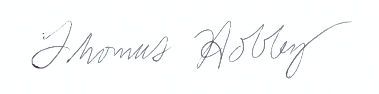 Thomas Hobbey